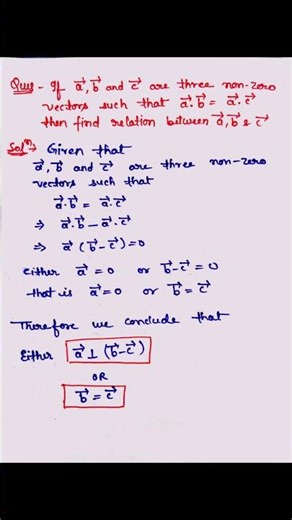 Ques - If a⃗, b⃗ and c⃗ are three non-zero
vectors such that a⃗.b⃗ = a⃗.c⃗
then find relation between a⃗, b⃗ & c⃗
Solⁿ. Given that
a⃗, b⃗ and c⃗ are three non-zero
vectors such that
a⃗.b⃗ = a⃗.c⃗
⇒ a⃗.b⃗ - a⃗.c⃗
⇒ a⃗ (b⃗-c⃗)=0
either a⃗ = 0 or b⃗-c⃗ = 0
that is a⃗=0 or b⃗=c⃗
Therefore we conclude that
Either a⃗ ⊥ (b⃗-c⃗)
OR
b⃗ = c⃗